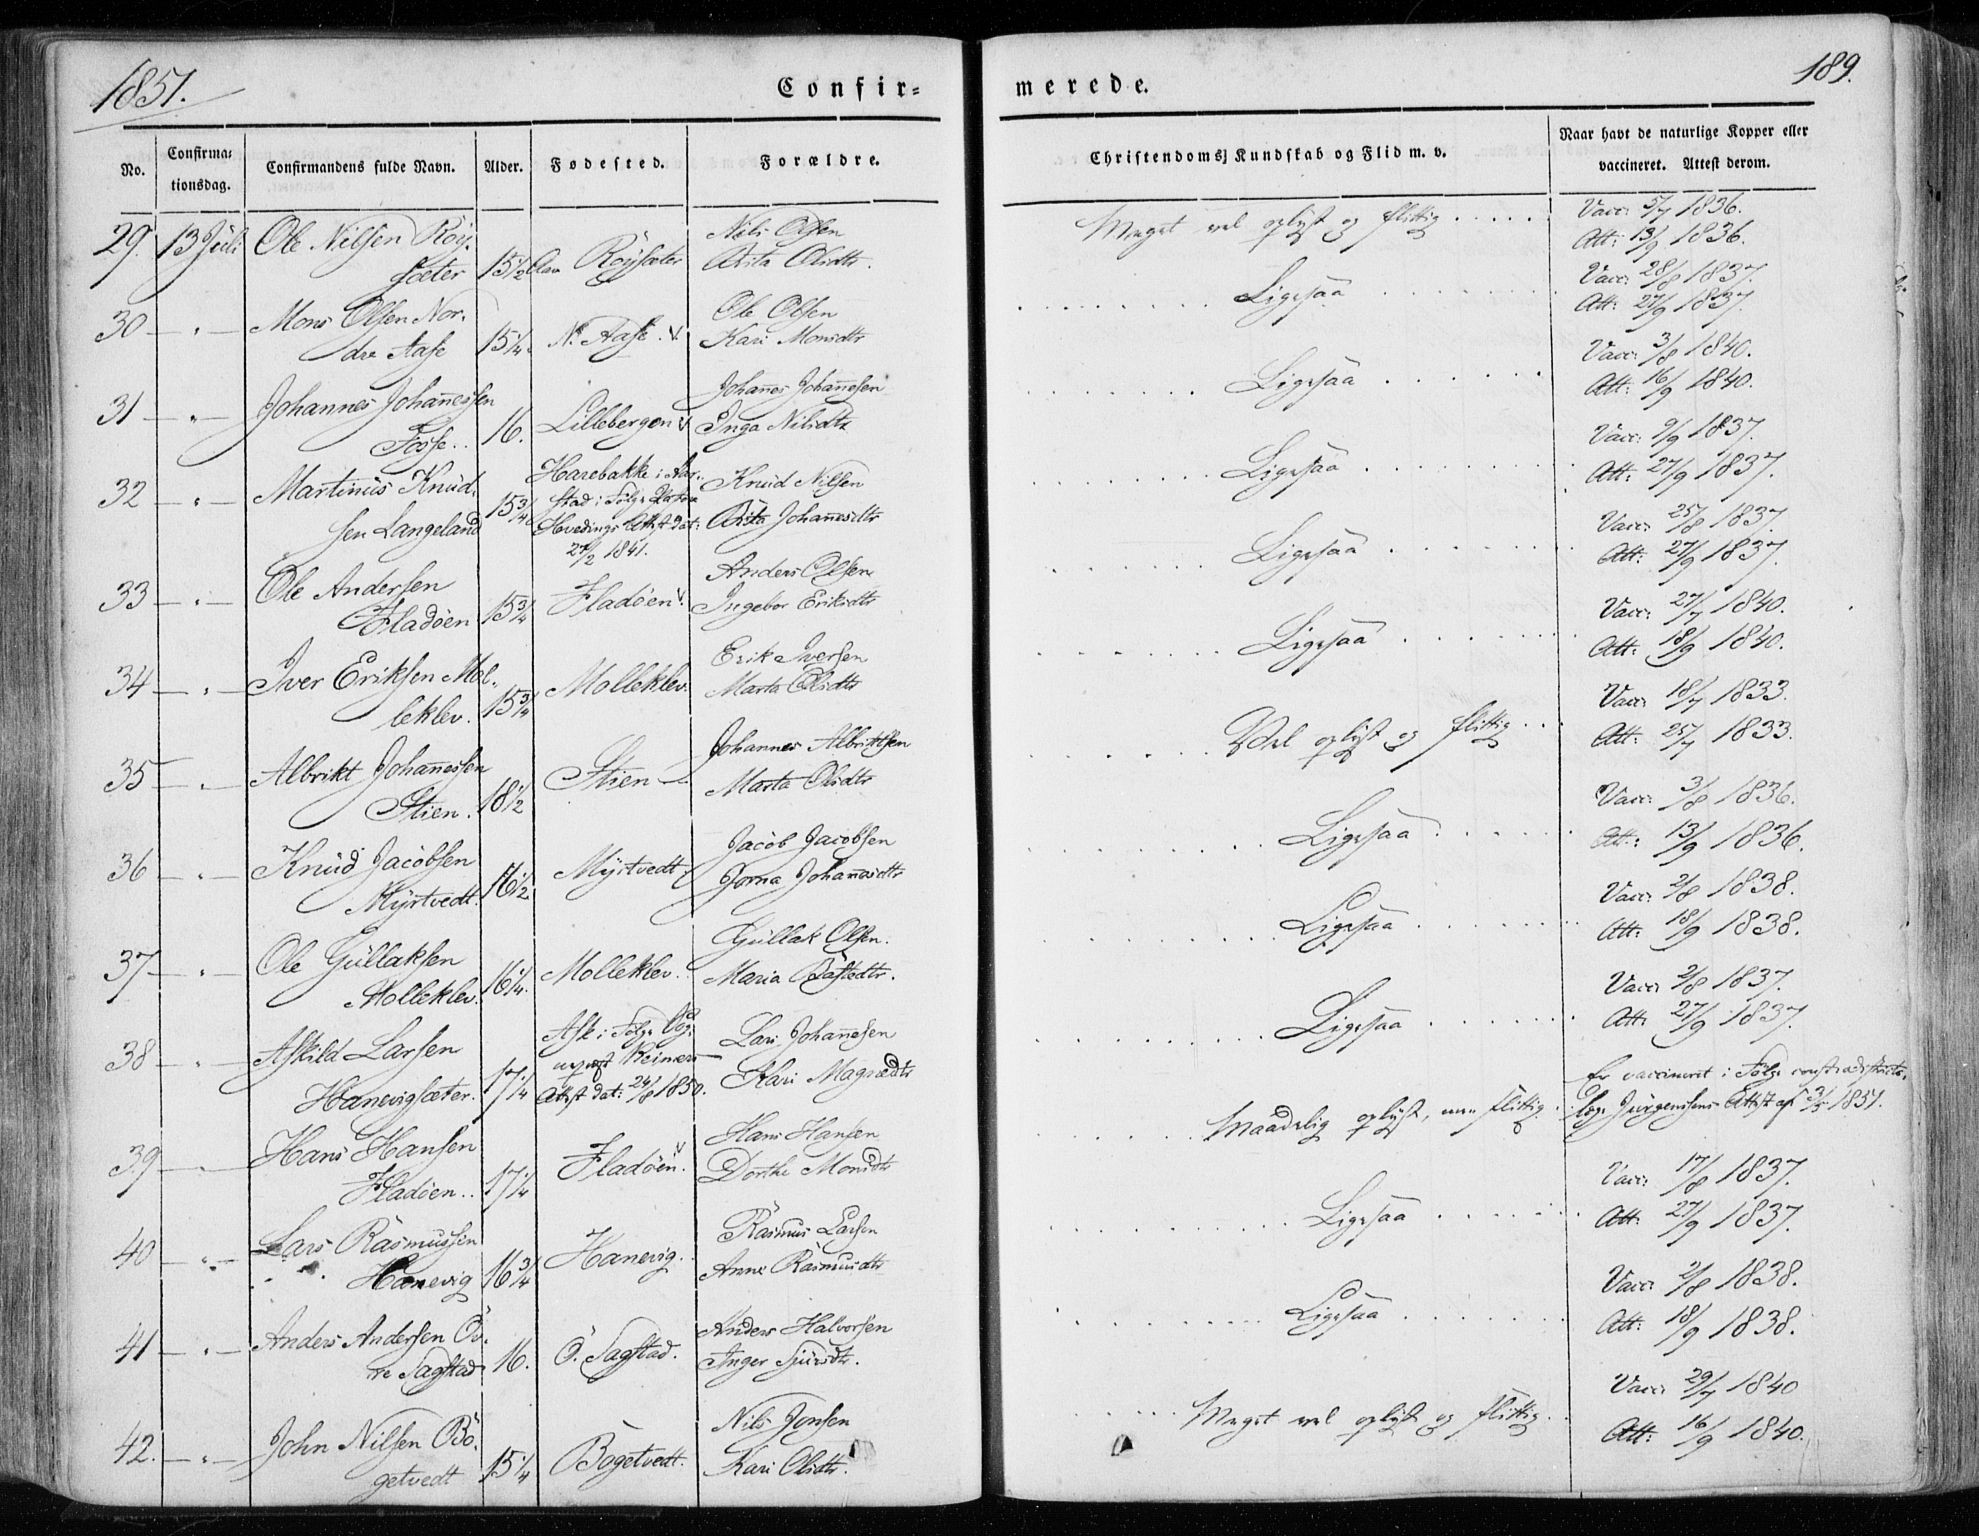 1851.
Confir=
merede.
189.
No.
Confirma=
tionsdag.
Confirmandens fulde Navn.
Alder.
Fødested.
Forældre.
Christendoms Kundskab og Flid m. v.
Naar havt de naturlige Kopper eller
vaccineret. Attest derom.
29. 13 Juli Ole Nilsen Röy-
sæter 15 1/2 Röysæter
Nils Olsen
Brita Olsdtr.
Meget vel oplyst og flittig . . . . .
Vacc: 5/7 1836.
Att: 13/9 1836.
30 — " — Mons Olsen Nor-
dre Aase 15 1/4. N. Aase.
Ole Olsen
Kari Monsdtr
Ligesaa
Vacc: 28/8 1837.
Att: 27/9 1837.
31 — " — Johannes Johannessen
Fosse. 16. Lillebergen
Johannes Johannesen
Inga Nilsdtr
Ligesaa
Vacc: 3/8 1840.
Att: 16/9 1840.
32 — " — Martinus Knud-
sen Langeland 15 3/4
Harebakke i Aar-
stad i Følge
Hvedings Attest dat:
2/2 1841.
Knud Nilsen
Brita Johannesdtr
Ligesaa
Vacc: 9/9 1837.
Att: 27/9 1837.
33 — " — Ole Andersen
Fladöen 15 3/4 Fladöen.
Anders Olsen
Ingebor Eriksdtr
Ligesaa
Vacc: 25/8 1837.
Att: 27/9 1837.
34 — " — Iver Eriksen Mol-
leklev. 15 3/4 Molleklev
Erik Iversen
Marta Olsdtr
Ligesaa
Vacc: 27/7 1840.
Att: 18/9 1840.
35 — " — Albrikt Johannessen
Stien. 18 1/2 Stien
Johannes Albriktsen
Marta Olsdtr
Vel oplyst og flittig . . .
Vacc: 18/7 1833.
Att: 25/7 1833.
36 — " — Knud Jacobsen
Myrtvedt. 16 1/2 Myrtvedt
Jacob Jacobsen
Gorna Johannesdtr
Ligesaa
Vacc: 3/8 1836.
Att: 13/9 1836.
37 — " — Ole Gullaksen
Molleklev. 16 1/4. Molleklev.
Gullak Olsen.
Maria Baste dtr.
Ligesaa
Vacc: 2/8 1838.
Att: 18/9 1838.
38 — " — Askild Larsen
Hanevigsæter. 17 1/4
Ask i Følge
Reimers
Attest dat: 24/8 1850.
Lars Johannesen
Kari Magnedtr
Ligesaa
Vacc: 2/8 1837.
Att: 27/9 1837.
39 — " — Hans Hansen
Fladöen. 17 1/4 Fladöen.
Hans Hansen
Dorthe Monsdtr
Maadelig oplyst, men flittig.
Er vaccineret i Følge
Jürgensens Attest af 2/5 1851.
40 — " — Lars Rasmussen
Hanevig 16 3/4 Hanevig.
Rasmus Larsen
Anne Rasmusdtr
Ligesaa
Vacc: 17/8 1837.
Att: 27/9 1837.
41 — " — Anders Andersen Öv-
re Sagstad 16. Ö. Sagstad.
Anders Halvorsen
Inger Sjursdtr.
Ligesaa
Vacc: 2/8 1838.
Att: 18/9 1838.
42. — " — John Nilsen Bö-
getvedt 15 1/4 Bögetvedt.
Nils Jonsen
Kari Olsdtr.
Meget vel oplyst og flittig.
Vacc: 29/7 1840
Att: 16/9 1840.